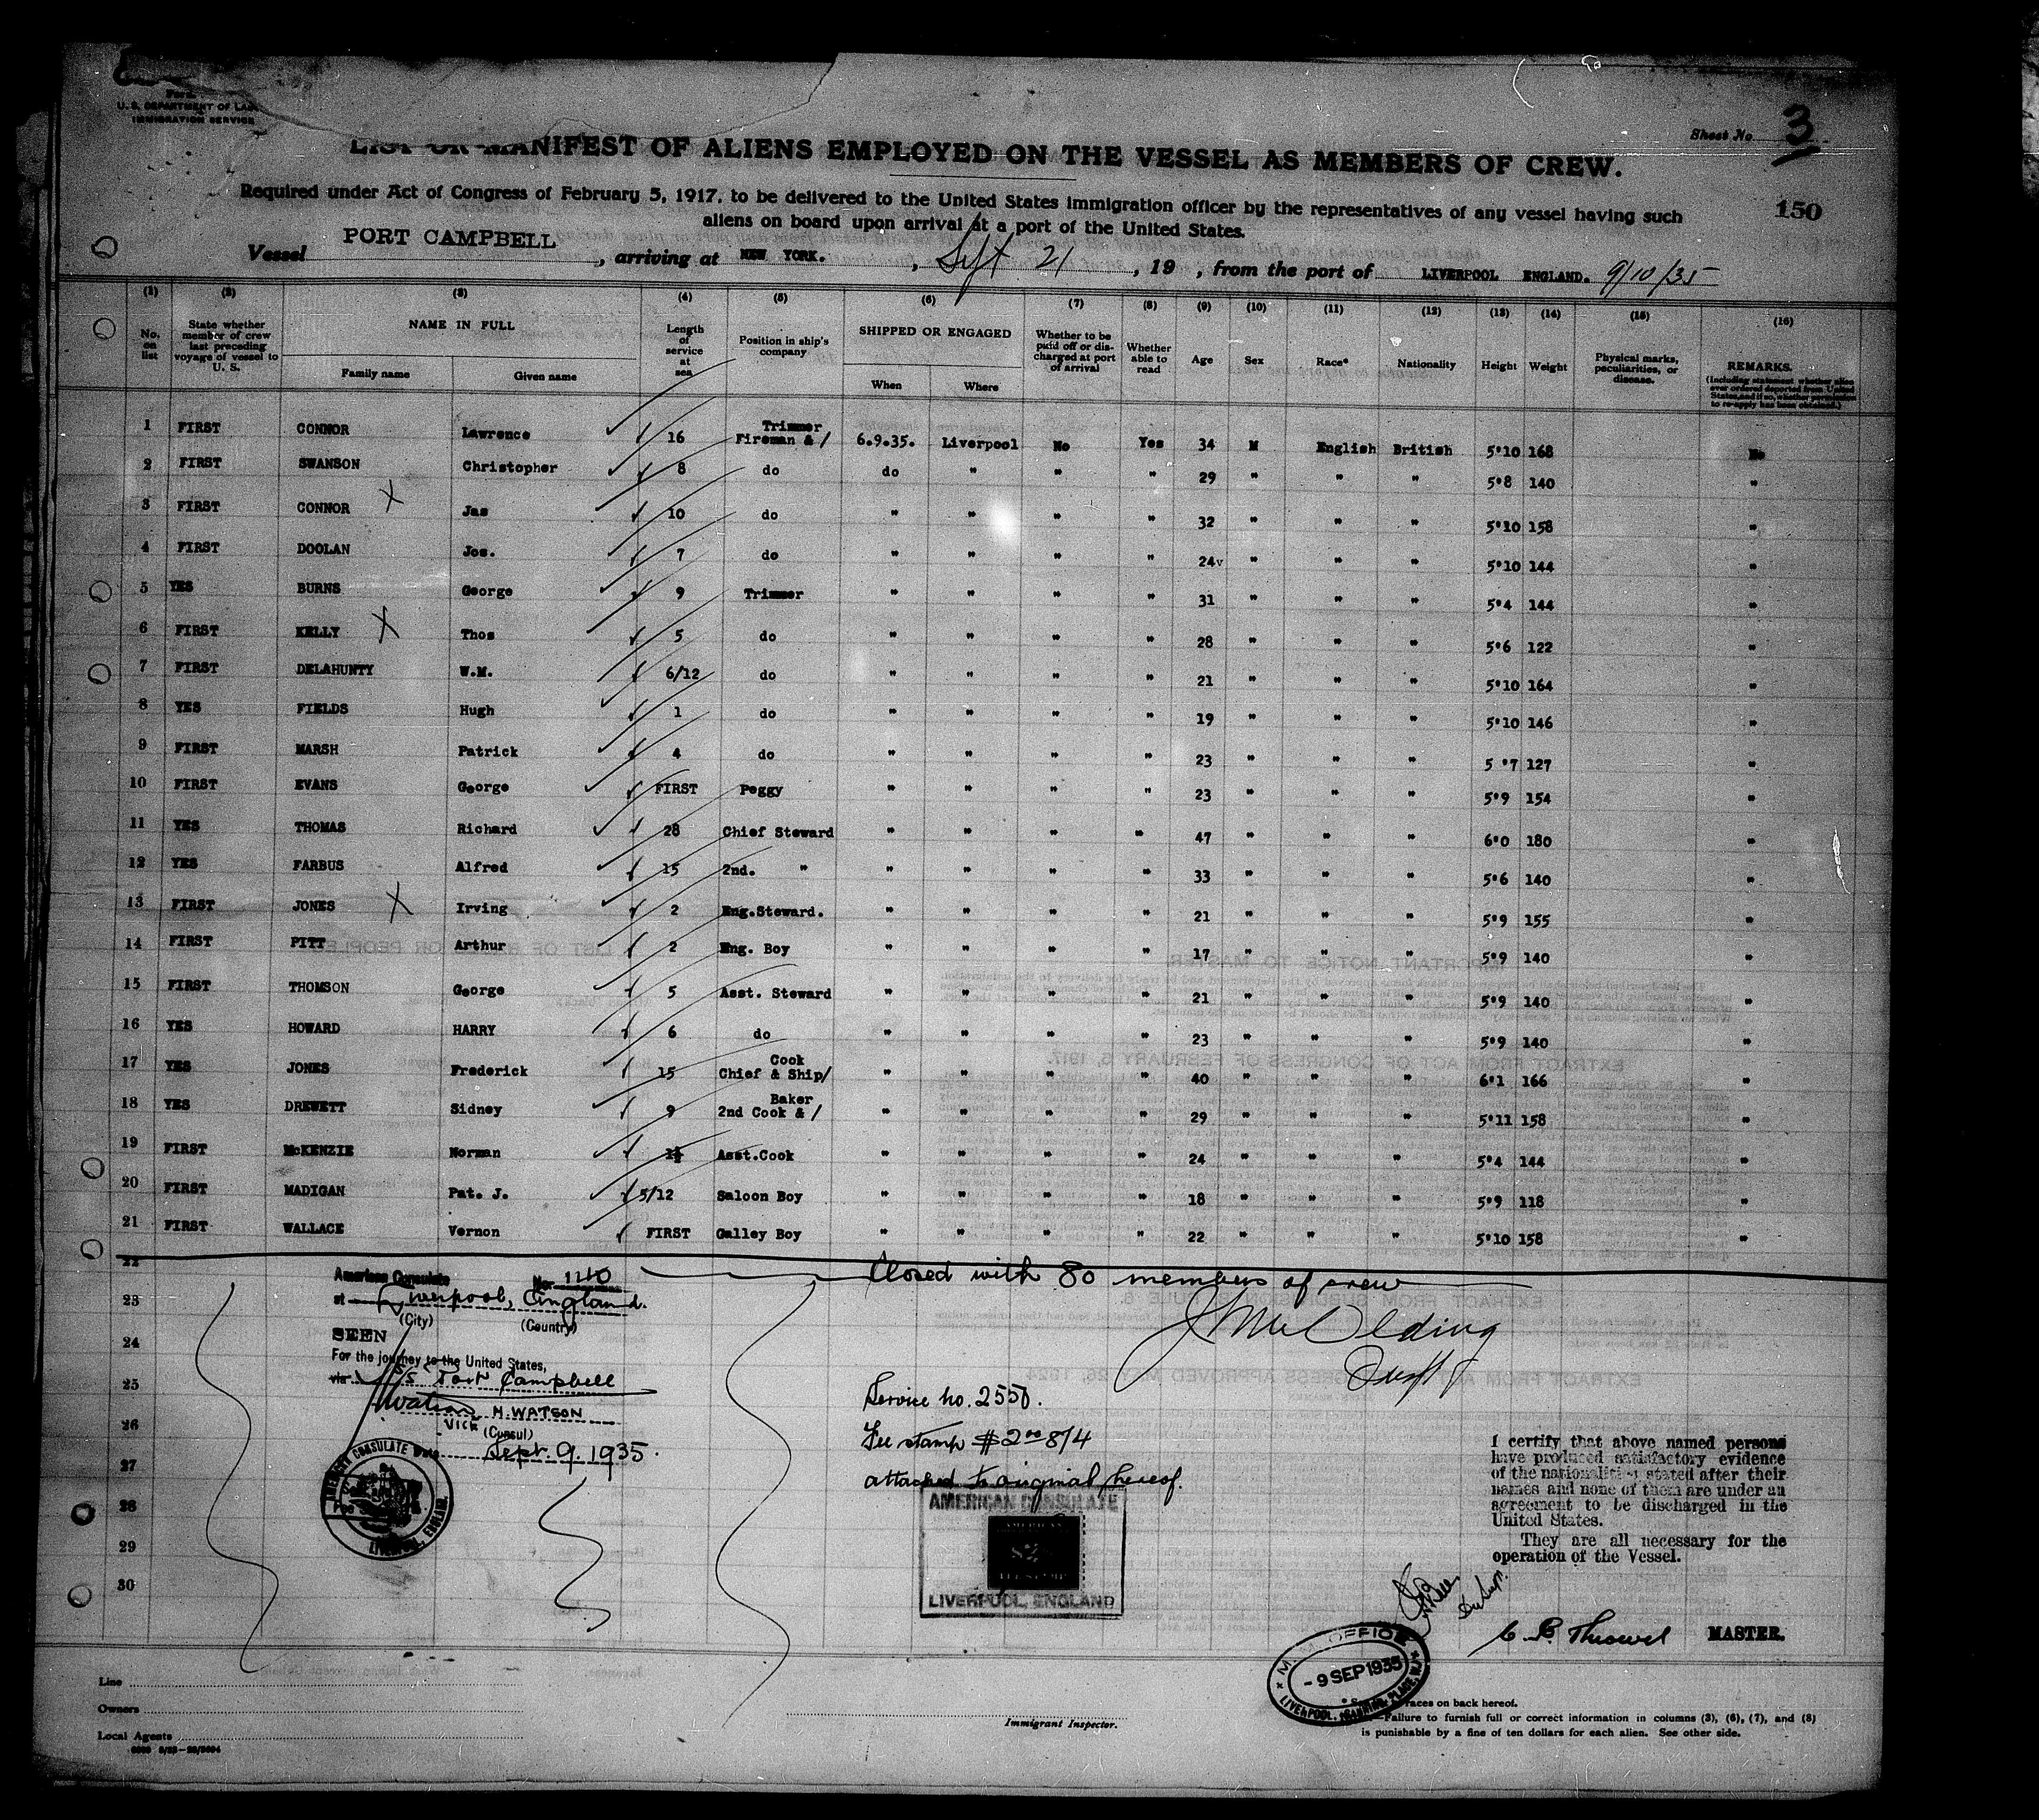 U. S. DEPARTMENT OF LAB
IMMIGRATION SERVICE
Sheet No. 3
LIST OR MANIFEST OF ALIENS EMPLOYED ON THE VESSEL AS MEMBERS OF CREW.
Required under Act of Congress of February 5, 1917, to be delivered to the United States immigration officer by the representatives of any vessel having such
aliens on board upon arrival at a port of the United States.
150
Vessel PORT CAMPBELL, arriving at NEW YORK., Sept 21, 19 , from the port of LIVERPOOL ENGLAND. 9/10/35
(1) (2) (3) (4) (5) (6) (7) (8) (9) (10) (11) (12) (13) (14) (15) (16)
No. on list | State whether member of crew last preceding voyage of vessel to U. S. | NAME IN FULL | Family name | Given name | Length of service at sea | Position in ship's company | SHIPPED OR ENGAGED | When | Where | Whether to be paid off or discharged at port of arrival | Whether able to read | Age | Sex | Race* | Nationality | Height | Weight | Physical marks, peculiarities, or disease. | REMARKS. (Including statement whether alien ever ordered deported from United States, and if so, whether permission to re-apply has been obtained.)
1 FIRST CONNOR Lawrence 16 Trimmer Fireman & / 6.9.35. Liverpool No Yes 34 M English British 5'10 168 No
2 FIRST SWANSON Christopher 8 do do " " " 29 " " " 5'8 140 "
3 FIRST CONNOR X Jas 10 do " " " " 32 " " " 5'10 158 "
4 FIRST DOOLAN Jos. 7 do " " " " 24v " " " 5'10 144 "
5 YES BURNS George 9 Trimmer " " " " 31 " " " 5'4 144 "
6 FIRST KELLY X Thos 5 do " " " " 28 " " " 5'6 122 "
7 FIRST DELAHUNTY W.M. 6/12 do " " " " 21 " " " 5'10 164 "
8 YES FIELDS Hugh 1 do " " " " 19 " " " 5'10 146 "
9 FIRST MARSH Patrick 4 do " " " " 23 " " " 5 '7 127 "
10 FIRST EVANS George FIRST Peggy " " " " 23 " " " 5'9 154 "
11 YES THOMAS Richard 28 Chief Steward " " " " 47 " " " 6'0 180 "
12 YES FARBUS Alfred 15 2nd. " " " " " 33 " " " 5'6 140 "
13 FIRST JONES X Irving 2 Eng.Steward. " " " " 21 " " " 5'9 155 "
14 FIRST PITT Arthur 2 Eng. Boy " " " " 17 " " " 5'9 140 "
15 FIRST THOMSON George 5 Asst. Steward " " " " 21 " " " 5'9 140 "
16 YES HOWARD HARRY 6 do " " " " 23 " " " 5'9 140 "
17 YES JONES Frederick 15 Cook Chief & Ship/ " " " " 40 " " " 6'1 166 "
18 YES DREWETT Sidney 9 Baker 2nd Cook & / " " " " 29 " " " 5'11 158 "
19 FIRST McKENZIE Norman 1½ Asst.Cook " " " " 24 " " " 5'4 144 "
20 FIRST MADIGAN Pat. J. 5/12 Saloon Boy " " " " 18 " " " 5'9 118 "
21 FIRST WALLACE Vernon FIRST Galley Boy " " " " 22 " " " 5'10 158 "
22
23
24
25
26
27
28
29
30
Closed with 80 members of crew
American Consulate No. 1140
at Liverpool, England.
(City) (Country)
SEEN
For the journey to the United States,
via S/S Port Campbell
Watson H. WATSON
VICE (Consul)
Date Sept. 9. 1935.
AMERICAN CONSULATE
LIVERPOOL, ENGLAND.
Service no. 2550.
Fee stamp #2.00 8/4
attached to original hereof.
AMERICAN CONSULATE
LIVERPOOL, ENGLAND
I certify that above named persons
have produced satisfactory evidence
of the nationalities stated after their
names and none of them are under an
agreement to be discharged in the
United States.
They are all necessary for the
operation of the Vessel.
MASTER.
M. M. OFFICE
- 9 SEP 1935
LIVERPOOL, CANNING PLACE
Line
Owners
Local Agents
Immigrant Inspector.
races on back hereof.
Failure to furnish full or correct information in columns (3), (6), (7), and (8)
is punishable by a fine of ten dollars for each alien. See other side.